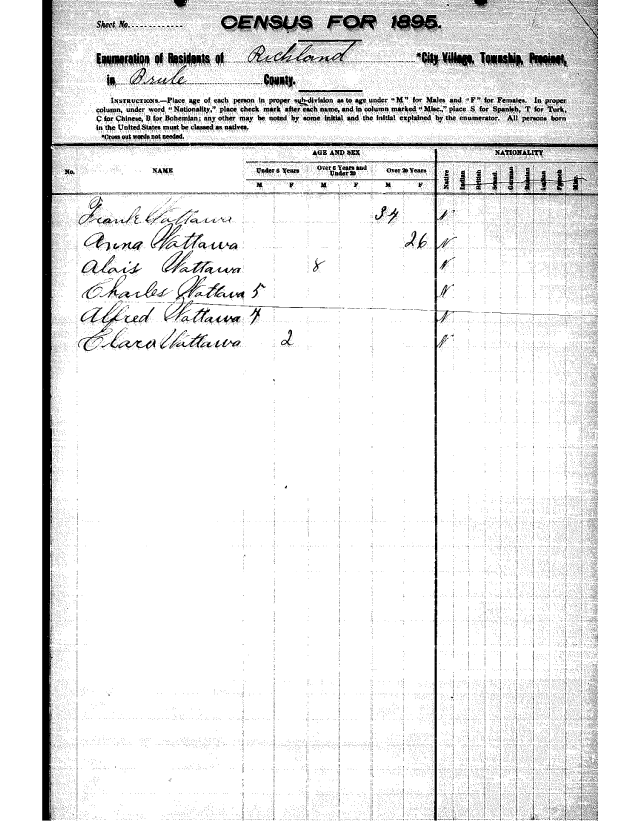 Sheet No.
CENSUS FOR 1895.
Enumeration of Residents of Richland *City Village, Township, Precinct,
in Brule County.
INSTRUCTIONS.—Place age of each person in proper sub-division as to age under "M" for Males and "F" for Females. In proper
column, under word "Nationality," place check mark after each name, and in column marked "Misc.," place S for Spanish, T for Turk,
C for Chinese, B for Bohemian; any other may be noted by some initial and the initial explained by the enumerator. All persons born
in the United States must be classed as natives.
*Cross out words not needed.
AGE AND SEX NATIONALITY
No. NAME Under 6 Years Over 6 Years and Under 20 Over 20 Years Native Indian British Scand. German Russian Latin French Misc.
M F M F M F
Frank Wattawa 34 N
Anna Wattawa 26 N
Alois Wattawa 8 N
Charles Wattawa 5 N
Alfred Wattawa 4 N
Clara Wattawa 2 N